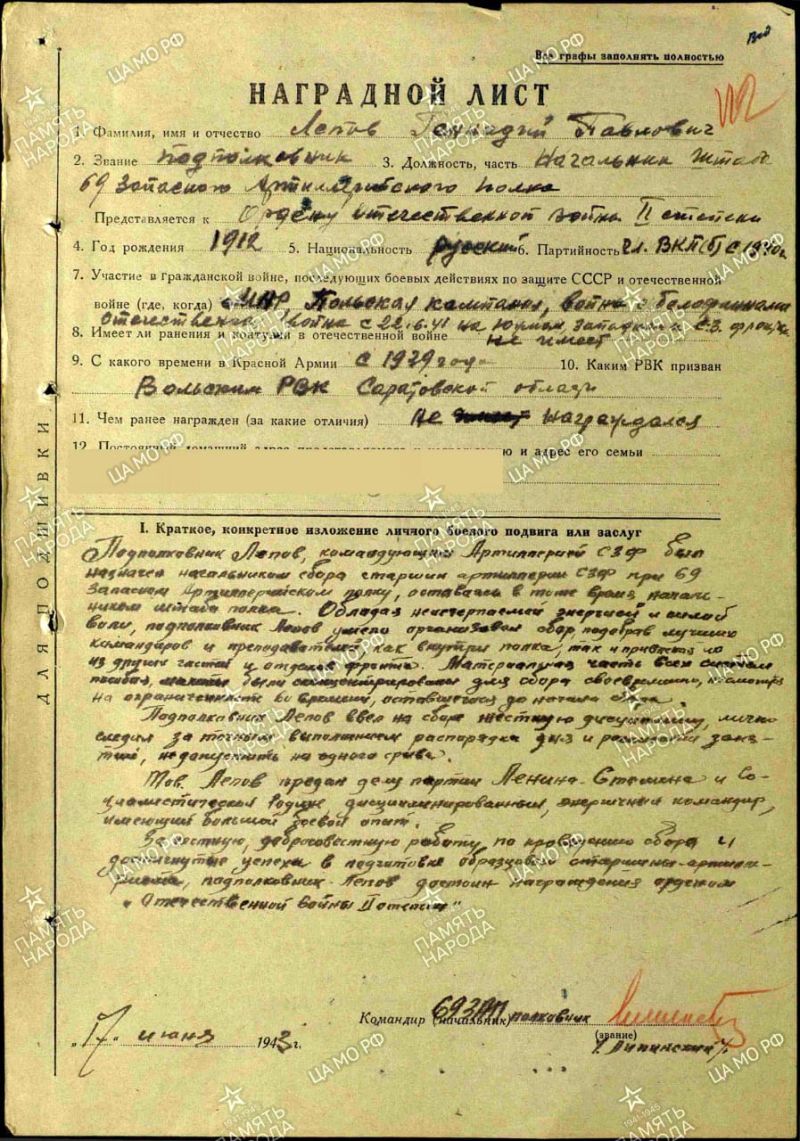 Все графы заполнять полностью
НАГРАДНОЙ ЛИСТ
1. Фамилия, имя и отчество Лепов Геннадий Павлович
2. Звание подполковник 3. Должность, часть Начальник штаба
69 Запасного Артиллерийского полка
Представляется к Ордену отечественной войны II степени
4. Год рождения 1912 5. Национальность русский 6. Партийность чл. ВКП(б) с 1940г
7. Участие в гражданской войне, последующих боевых действиях по защите СССР и отечественной
войне (где, когда) МНР Польская кампания, война с Белофиннами
Отечественная война с 22.6.41 на Южном, Западном и С.З. фронтах
8. Имеет ли ранения и контузии в отечественной войне не имеет
9. С какого времени в Красной Армии с 1929 года 10. Каким РВК призван
Вольским РВК Саратовской области
11. Чем ранее награжден (за какие отличия) Не награждался
12. Постоянный домашний адрес и адрес его семьи
I. Краткое, конкретное изложение личного боевого подвига или заслуг
Подполковник Лепов, командующим Артиллерией СЗФ был
назначен начальником сбора старшин артиллерии СЗФ при 69
Запасном Артиллерийском полку, оставаясь в тоже время началь-
ником штаба полка. Обладая неисчерпаемой энергией и силой
воли, подполковник Лепов умело организовал сбор подобрав лучших
командиров и преподавателей как внутри полка, так и
из других частей и отделов фронта. Материальная часть всех систем
пособия, были сконцентрированы для сбора своевременно, несмотря
на ограниченность во времени, оставшегося до начала сбора.
Подполковник Лепов ввел на сборе жесткую дисциплину, лично
следил за точным выполнением распорядка дня и расписания заня-
тий, недопустив ни одного срыва.
Тов. Лепов предан делу партии Ленина-Сталина и Со-
циалистической родине, дисциплинированный, энергичный командир,
имеющий большой боевой опыт.
За честную, добросовестную работу по проведению сбора и
достигнутые успехи в подготовке образцовых старшин-артилле-
ристов, подполковник Лепов достоин награждения орденом
„Отечественной войны II степени"
Командир (начальник) 69 ЗАП полковник
(звание)
/Липинский/
„17" июня 1943 г.
ДЛЯ ПОДШИВКИ
ПАМЯТЬ НАРОДА
ЦАМО.РФ